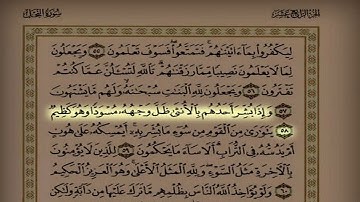 الجزء الرابع عشر
سورة النحل
لِيَكْفُرُوا بِمَا ءَاتَيْنَٰهُمْ فَتَمَتَّعُوا فَسَوْفَ تَعْلَمُونَ ٥٥ وَيَجْعَلُونَ
لِمَا لَا يَعْلَمُونَ نَصِيبًا مِّمَّا رَزَقْنَٰهُمْ تَٱللَّهِ لَتُسْـَٔلُنَّ عَمَّا كُنتُمْ
تَفْتَرُونَ ٥٦ وَيَجْعَلُونَ لِلَّهِ ٱلْبَنَٰتِ سُبْحَٰنَهُۥ وَلَهُم مَّا يَشْتَهُونَ
٥٧ وَإِذَا بُشِّرَ أَحَدُهُم بِٱلْأُنثَىٰ ظَلَّ وَجْهُهُۥ مُسْوَدًّا وَهُوَ كَظِيمٌ
٥٨ يَتَوَٰرَىٰ مِنَ ٱلْقَوْمِ مِن سُوٓءِ مَا بُشِّرَ بِهِۦٓ أَيُمْسِكُهُۥ عَلَىٰ هُونٍ
أَمْ يَدُسُّهُۥ فِى ٱلتُّرَابِ أَلَا سَآءَ مَا يَحْكُمُونَ ٥٩ لِلَّذِينَ لَا يُؤْمِنُونَ
بِٱلْأَخِرَةِ مَثَلُ ٱلسَّوْءِ وَلِلَّهِ ٱلْمَثَلُ ٱلْأَعْلَىٰ وَهُوَ ٱلْعَزِيزُ ٱلْحَكِيمُ
٦٠ وَلَوْ يُؤَاخِذُ ٱللَّهُ ٱلنَّاسَ بِظُلْمِهِم مَّا تَرَكَ عَلَيْهَا مِن دَآبَّةٍ وَلَٰكِن